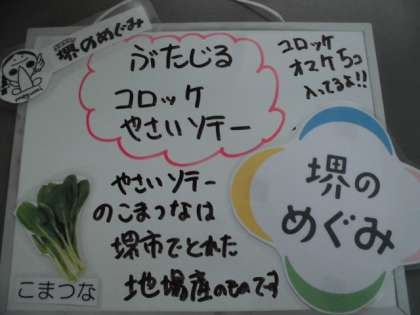 堺のめぐみ
ぶたじる
コロッケ
やさいソテー
コロッケ
オマケ5コ
入ってるよ!!
やさいソテー
のこまつなは
堺市でとれた
地場産のものです
堺の
めぐみ
こまつな